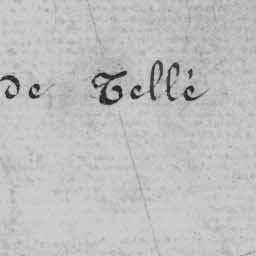 de Tellé